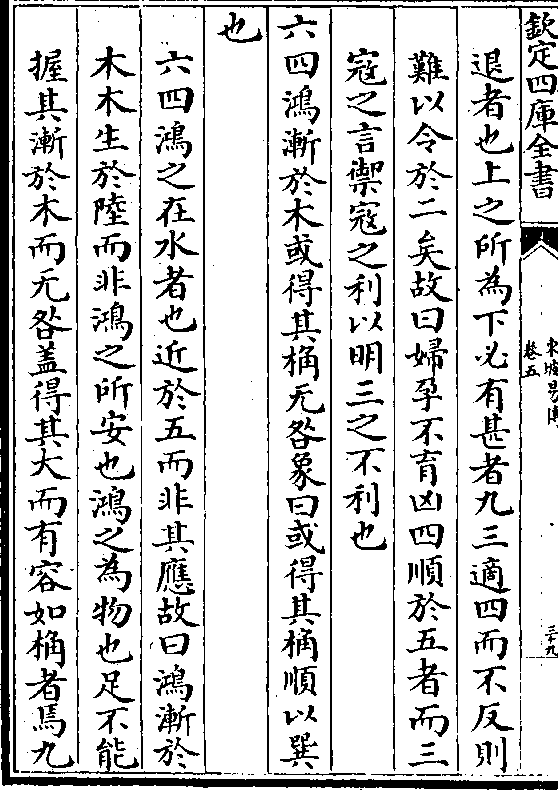 欽定四庫全書
東坡易傳
卷五
三十九
退者也上之所為下必有甚者九三適四而不反則
難以令於二矣故曰婦孕不育凶四順於五者而三
宼之言禦宼之利以明三之不利也
六四鴻漸於木或得其桷无咎象曰或得其桷順以巽
也
六四鴻之在水者也近於五而非其應故曰鴻漸於
木木生於陸而非鴻之所安也鴻之為物也足不能
握其漸於木而无咎盖得其大而有容如桷者焉九